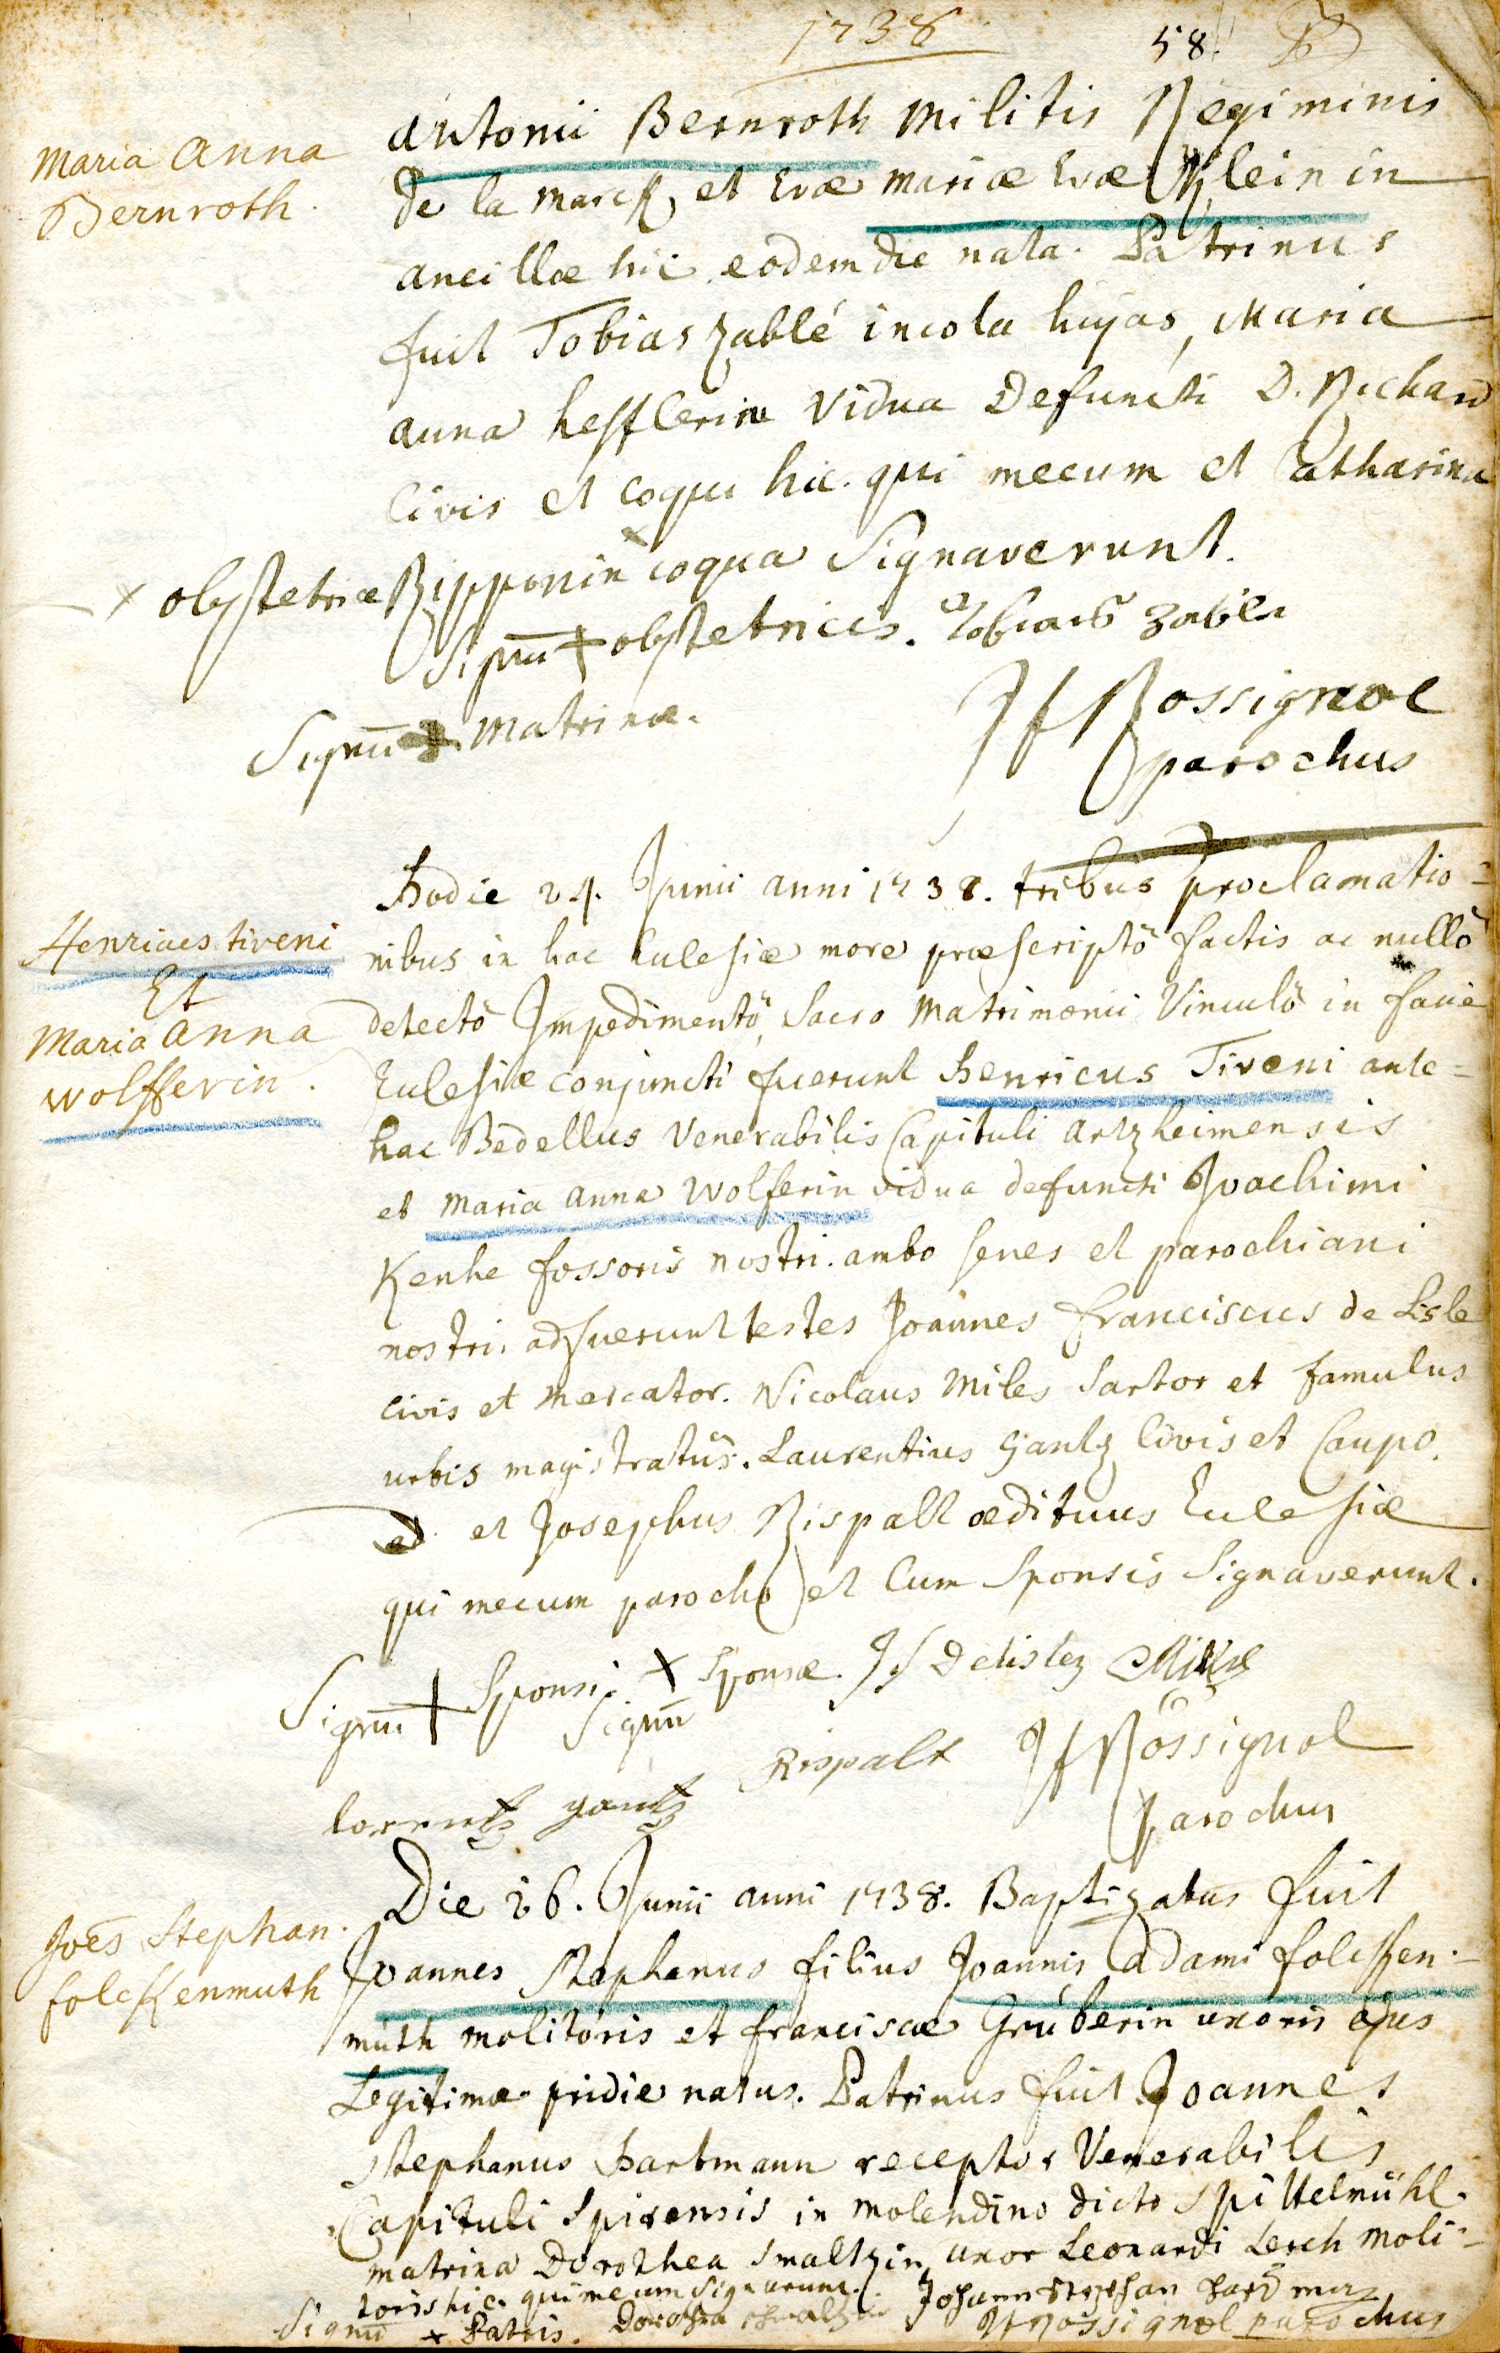 1738
58.
Maria Anna
Bernroth.
Antonii Bernroth Militis Regiminis
De la Marck, et Evæ Mariæ Evæ Kleinin
ancillæ hic eodem die nata. Patrinus
fuit Tobias Zablé incola hujas, Maria
anna hefflerin Vidua Defuncti D. Richard
Civis et coqui hic. qui mecum et Catharina
x obstetrice Ripponin x coqua Signaverunt.
Signū + obstetricis. Tobias Zable
Signū + Matrinæ.
JfRossignol
parochus
Henricus tiveni
Et
Maria Anna
wolfferin.
Hodie 24. Junii anni 1738. tribus proclamatio=
nibus in hac Eclesiæ more præscriptô factis ac nullô
detectô Impedimentô, Sacro Matrimonii Vinculô in facie
Eclesiæ conjuncti fuerunt Henricus Tiveni ante=
hac Bedellus Venerabilis Capituli Artzheimensis
et Maria Anna Wolferin vidua defuncti Joachimi
Kenhe fossoris nostri. ambo senes et parochiani
nostri. adfuerunt testes Joannes Franciscus de Lisle
civis et Mercator. Nicolaus Miles Sartor et famulus
urbis magistratûs. Laurentius Gantz Civis et Caupo.
et et Josephus Rispalt ædituus Eclesiæ
qui mecum parocho et Cum Sponsis Signaverunt.
Signū + Sponsi. x Sponsæ. Jf Delislez
Signū
lorentz gantz Rispalt JfRossignol
parochus
Joēs Stephan.
folckenmuth
Die 26. Junii anni 1738. Baptizatus fuit
Joannes Stephanus filius Joannis adami folcken-
muth molitoris et franciscæ Gruberin uxoris ejus
Legitimæ pridie natus. Patrinus fuit Joannes
Stephanus Hartmann receptor Venerabilis
Capituli Spirensis in molendino dicto Spittelmühl.
matrina Dorothea Smaltzin uxor Leonardi Lerch Moli=
toris hic. qui mecum Signarunt. Johann Stephan
Signū x Patris. Dorothea JfRossignol parochus